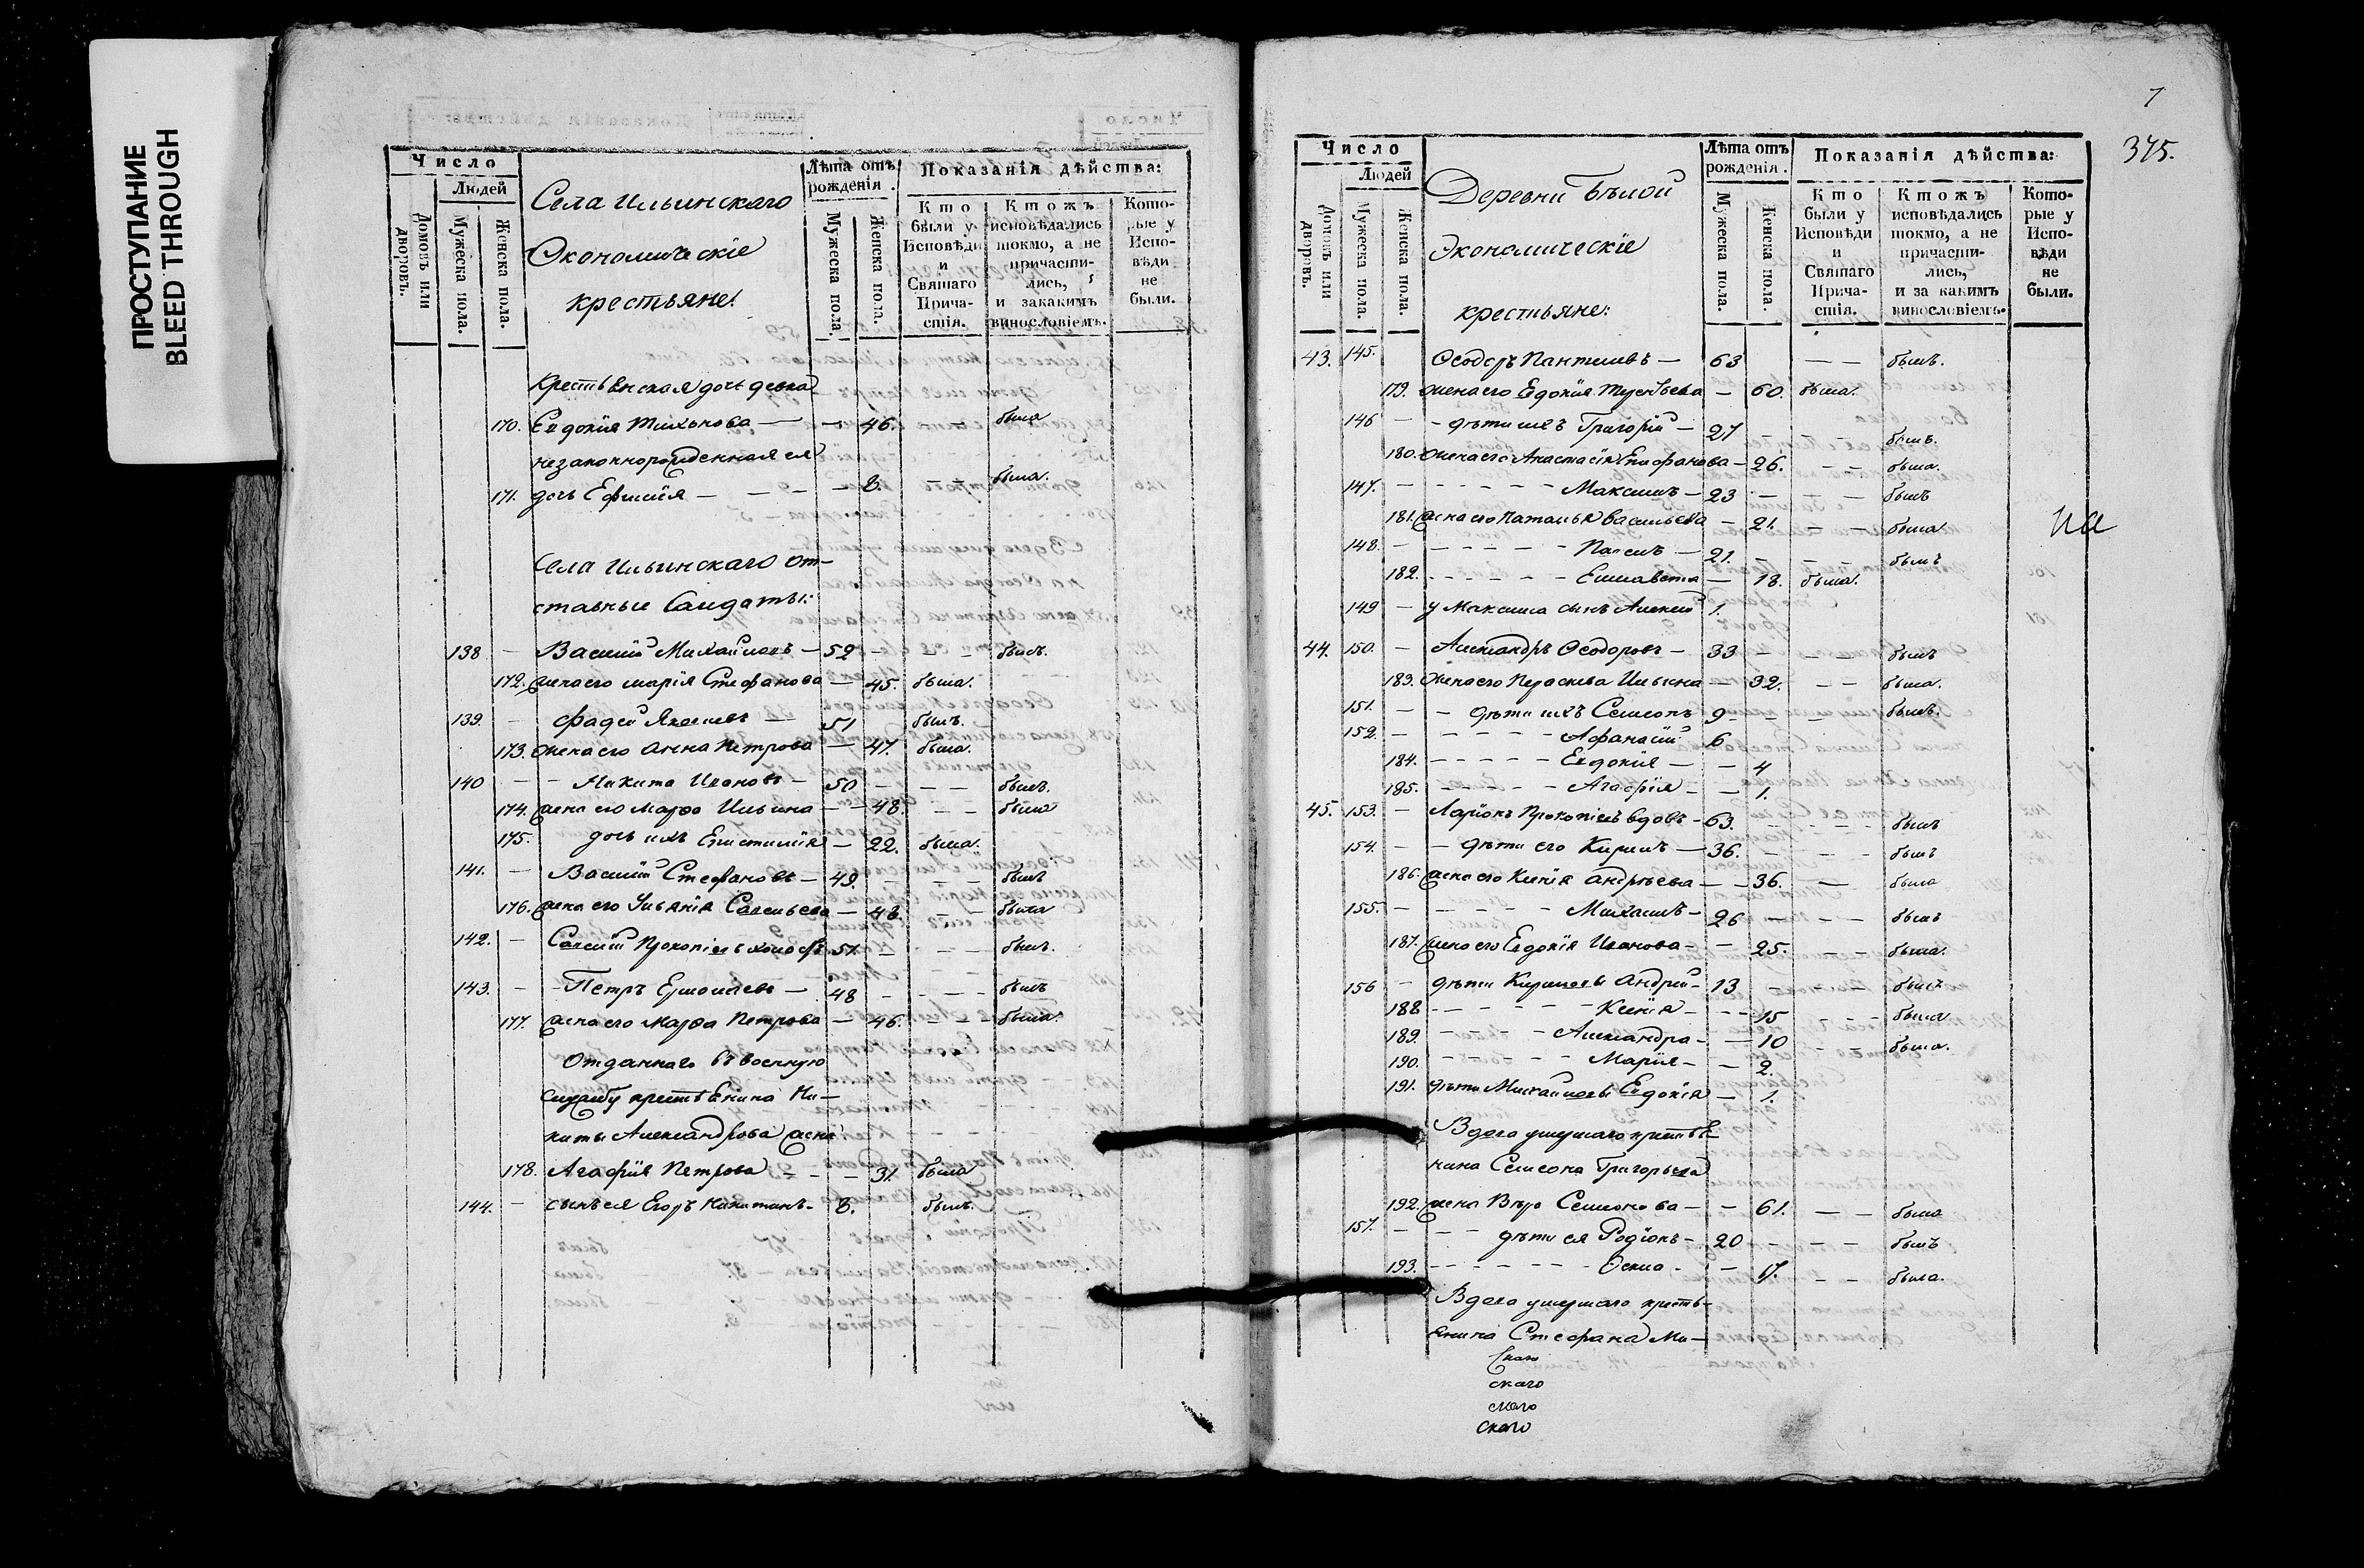 ПРОСТУПАНИЕ
BLEED THROUGH
Число
Людей
Домовъ или дворовъ.
Мужеска пола.
Женска пола.
Села Ильинскаго
Экономическіе
крестьяне:
Лѣта отъ рожденія.
Мужеска пола.
Женска пола.
Показанія дѣйства:
Кто были у Исповѣди и Святаго Прича-стія.
Ктожъ исповѣдались токмо, а не причасти-лись, и закакимъ винословіемъ.
Кото-рые у Испо-вѣди не были.
крестьенская дочь девка
170. Евдокия Тихонова — — 46. — была
незаконнорожденная ея
171. дочь Ефимия — — — — 8. — — была.
Села Ильинскаго от-
ставные Салдаты:
138 — Василий Михайловъ — 52 — — — былъ.
172. жена его Марія Стефанова — 45. была.
139. — Фадей Яковлевъ — 51 былъ.
173. жена его Анна Петрова — 47. была.
140 — — Никита Ивановъ — 50 — — — былъ.
174. жена его Марѳа Ильина — — 48. — — была
175. дочь ихъ Епистимія — 22. была.
141. — Василий Стефановъ — 49. — — — былъ
176. жена его Ульянія Савельева — 48. — — была
142. — Савелий Прокопіевъ холостъ 51. — — — былъ.
143. — Петръ Ермолаевъ — 48 — — — — былъ
177. жена его Марѳа Петрова — 46. — — — была.
Отданнаго въ военную
службу крестьенина Ни-
киты Александрова жена
178. Агафия Петрова — — — 31. была
144. — сынъ ея Егоръ Никитинъ — 8. былъ.
7
375.
Число
Людей
Домовъ или дворовъ.
Мужеска пола.
Женска пола.
Деревни Бѣлой
Экономическіе
крестьяне:
Лѣта отъ рожденія.
Мужеска пола.
Женска пола.
Показанія дѣйства:
Кто были у Исповѣди и Святаго Прича-стія.
Ктожъ исповѣдались токмо, а не причасти-лись, и за какимъ винословіемъ.
Кото-рые у Испо-вѣди не были.
43. 145. Ѳеодоръ — 63 — — былъ.
179. жена его Евдокия — 60. была.
146 — — дѣти ихъ Григорій — 27 — — — былъ.
180. жена его Анастасія Епифанова — 26. — — была.
147. — — — — — — Максимъ — 23 — — — былъ
181. жена его Наталья Васильева — 21. — — была
148. — — — — — — Павелъ — 21. — — — былъ
182. — — — — — Елисавета — 18. была.
149 — у Максима сынъ Алексей 1.
на
44. 150. — Александръ Ѳеодоровъ — 33 — — — былъ
183. жена его Параскева Ильина — 32. — — была.
151. — — дѣти ихъ Семионъ 9 — — — былъ.
152. — — — — — Афанасий 6
184. — — — — — Евдокия — — 4
185. — — — — — Агафия — — 1.
45. 153. — Ларіонъ Прокопіевъ вдовъ — 63. — — — былъ
154. — — дѣти его Кирилъ — 36. — — — былъ
186. жена его Ксенія Андрѣева — — 36. — была
155. — — — — — Михаилъ — 26 — — — былъ
187. жена его Евдокія Иванова — — 25. — — была.
156 — дѣти Кириловы Андрий — 13 — — — былъ
188 — — — — — Ксенія — — — 15 — — была
189. — — — — Александра — — 10 — — была.
190. — — — — — Марія — — 2.
191. дѣти Михайловы Евдокія — 1.
Вдова умершаго крестьѣ-
нина Семеона Григорьева
192. жена Вѣра Семионова — — 61. — — была
157. — — — дѣти ея Родіонъ — 20 — — — былъ
193. — — — — — — — 17. — — была.
Вдова умершаго кресть-
енина Стефана Ми-
скаго
скаго
скаго